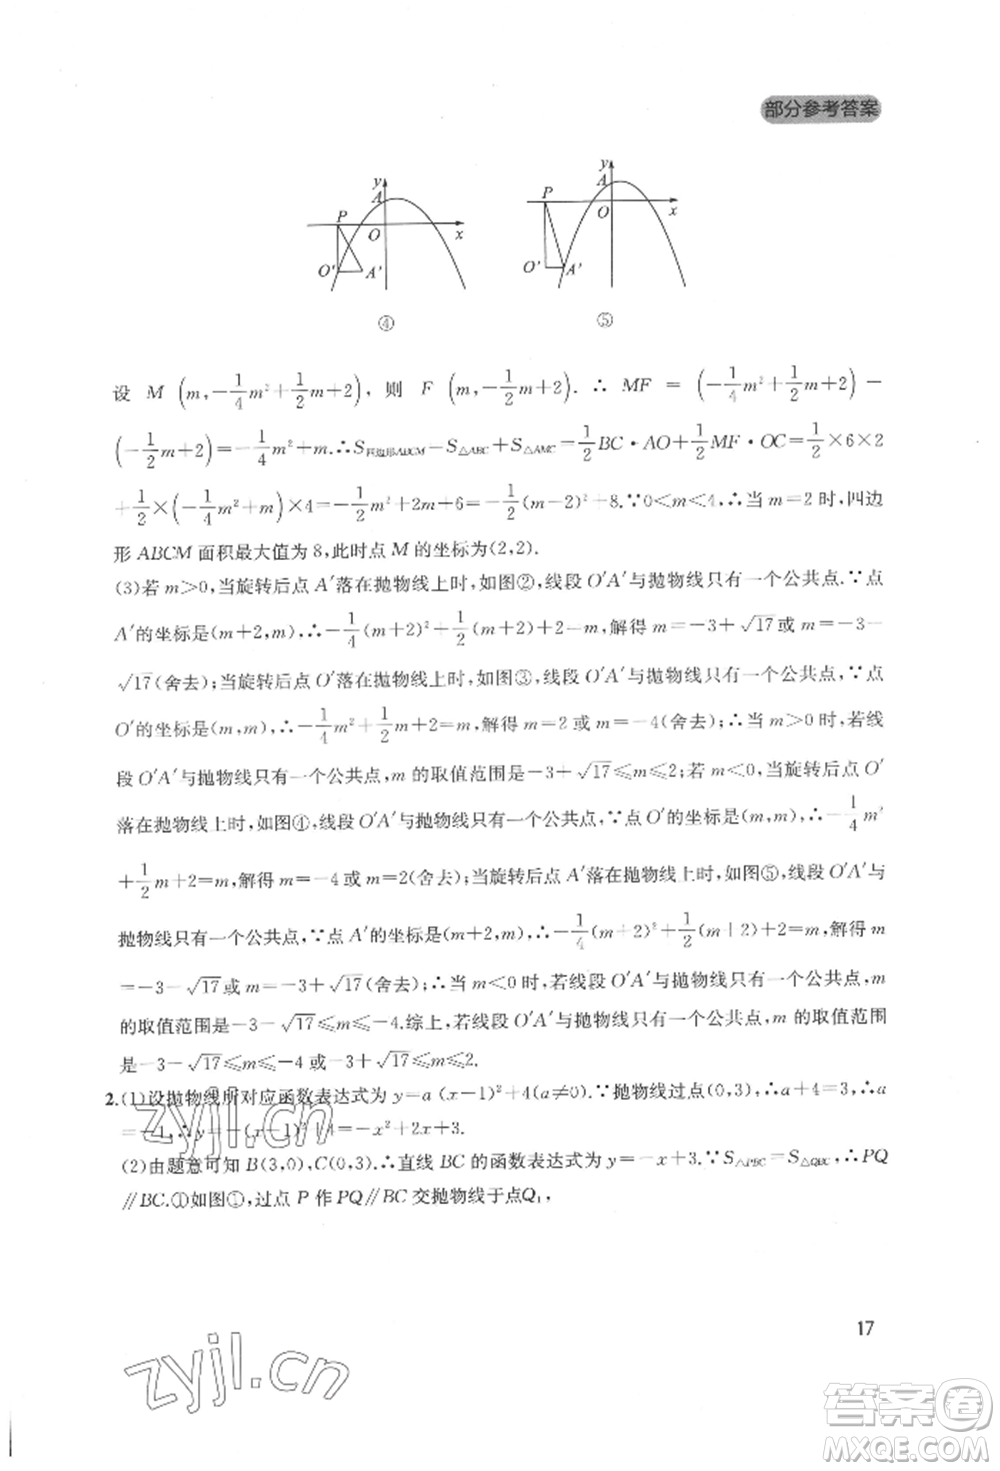 部分参考答案
y A P O x O' A' ④
y P A O x O' A' ⑤
设 M (m,-1/4m²+1/2m+2), 则 F (m,-1/2m+2). ∴ MF = (-1/4m²+1/2m+2) -
(-1/2m+2)=-1/4m²+m.∴S四边形ABCM=S△ABC+S△AMC=1/2BC·AO+1/2MF·OC=1/2×6×2
+1/2×(-1/4m²+m)×4=-1/2m²+2m+6=-1/2(m-2)²+8.∵0<m<4,∴当 m=2时,四边
形 ABCM 面积最大值为 8,此时点 M 的坐标为(2,2).
(3)若 m>0,当旋转后点 A'落在抛物线上时,如图②,线段 O'A'与抛物线只有一个公共点.∵点
A'的坐标是(m+2,m),∴-1/4(m+2)²+1/2(m+2)+2=m,解得 m=-3+√17或 m=-3-
√17(舍去);当旋转后点 O'落在抛物线上时,如图③,线段 O'A'与抛物线只有一个公共点,∵点
O'的坐标是(m,m),∴-1/4m²+1/2m+2=m,解得 m=2或 m=-4(舍去);∴当 m>0时,若线
段 O'A'与抛物线只有一个公共点,m 的取值范围是-3+√17≤m≤2;若 m<0,当旋转后点 O'
落在抛物线上时,如图④,线段 O'A'与抛物线只有一个公共点,∵点 O'的坐标是(m,m),∴-1/4m²
+1/2m+2=m,解得 m=-4或 m=2(舍去);当旋转后点 A'落在抛物线上时,如图⑤,线段 O'A'与
抛物线只有一个公共点,∵点 A'的坐标是(m+2,m),∴-1/4(m+2)²+1/2(m+2)+2=m,解得 m
=-3-√17或 m=-3+√17(舍去);∴当 m<0时,若线段 O'A'与抛物线只有一个公共点,m
的取值范围是-3-√17≤m≤-4.综上,若线段 O'A'与抛物线只有一个公共点,m 的取值范围
是-3-√17≤m≤-4或-3+√17≤m≤2.
2.(1)设抛物线所对应函数表达式为 y=a(x-1)²+4(a≠0).∵抛物线过点(0,3),∴a+4=3,∴a
=-1,∴y=-(x-1)²+4=-x²+2x+3.
(2)由题意可知 B(3,0),C(0,3).∴直线 BC 的函数表达式为 y=-x+3.∵S△PBC=S△QBC,∴PQ
∥BC.①如图①,过点 P 作 PQ∥BC 交抛物线于点Q₁,
zyjl.cn
17
zyjl.cn
答案圈
MXQE.COM